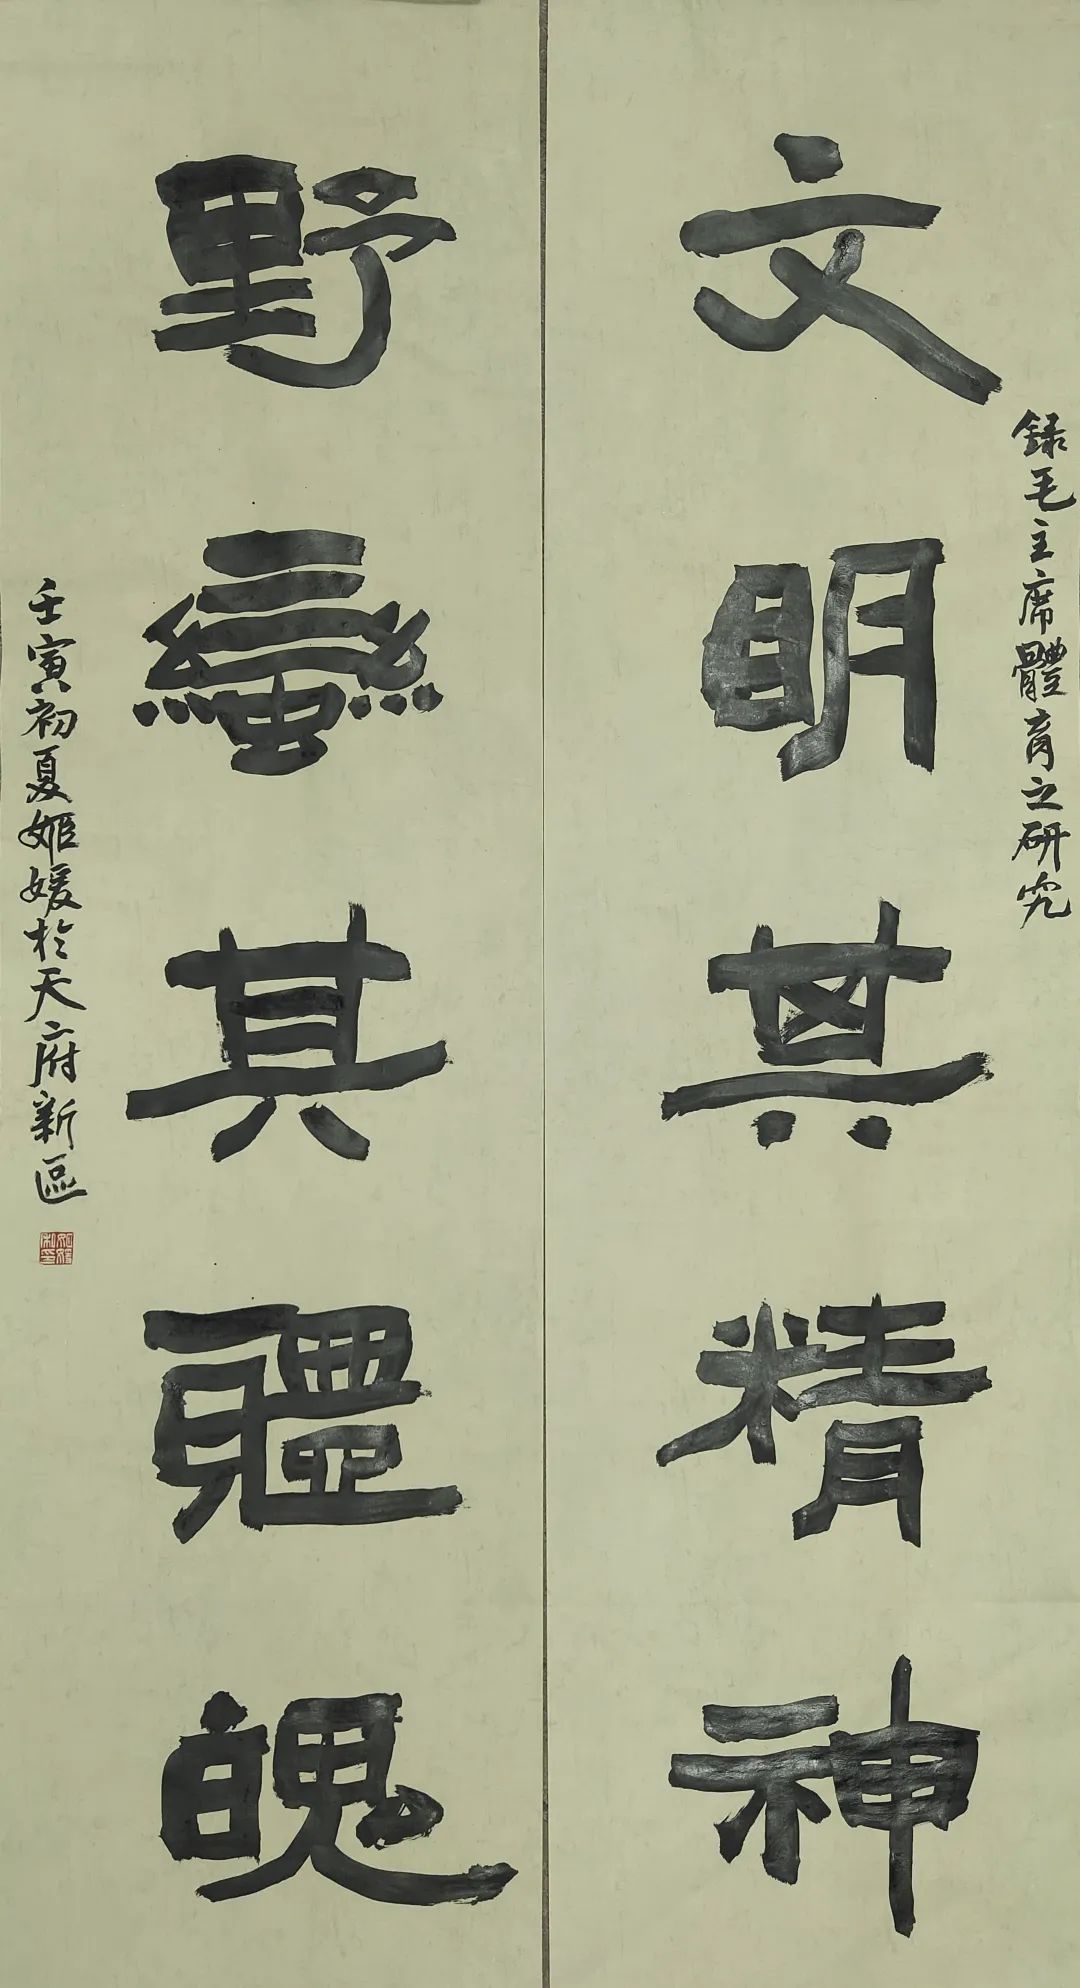 錄毛主席體育之研究
文明其精神
野蠻其體魄
壬寅初夏姬媛於天府新區